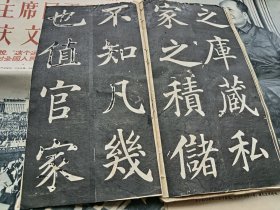 之库藏私
家之積儲
不知凡幾
也值官家
主席